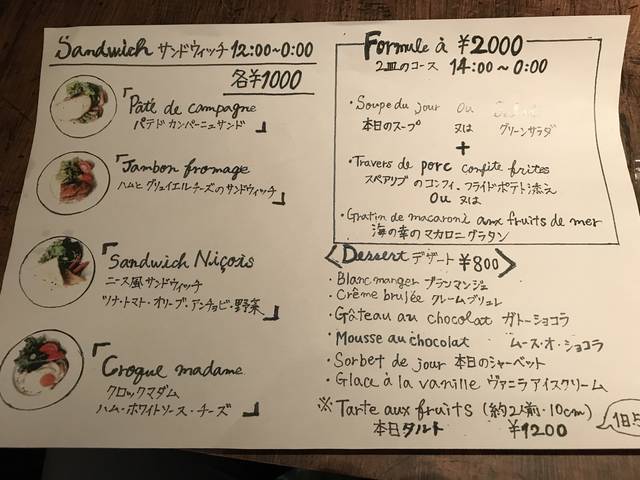 Sandwich サンドウィッチ 12:00~0:00
各¥1000
「Pâté de campagne
パテドカンパーニュサンド」
「Jambon fromage
ハムとグリュイエルチーズのサンドウィッチ」
「Sandwich Niçois
ニース風サンドウィッチ
ツナ・トマト・オリーブ・アンチョビ・野菜」
「Croque madame
クロックマダム
ハム・ホワイトソース・チーズ」
Formule à ¥2000
2皿のコース 14:00~0:00
・Soupe du jour ou
本日のスープ 又は グリーンサラダ
+
・Travers de porc confite frites
スペアリブのコンフィ、フライドポテト添え
ou 又は
・Gratin de macaroni aux fruits de mer
海の幸のマカロニグラタン
〈Dessert デザート ¥800〉
・Blanc manger ブランマンジェ
・Crème brulée クレームブリュレ
・Gâteau au chocolat ガトーショコラ
・Mousse au chocolat ムース・オ・ショコラ
・Sorbet de jour 本日のシャーベット
・Glace à la vanille ヴァニラアイスクリーム
※Tarte aux fruits (約2人前・10cm)
本日タルト ¥1200
1日5